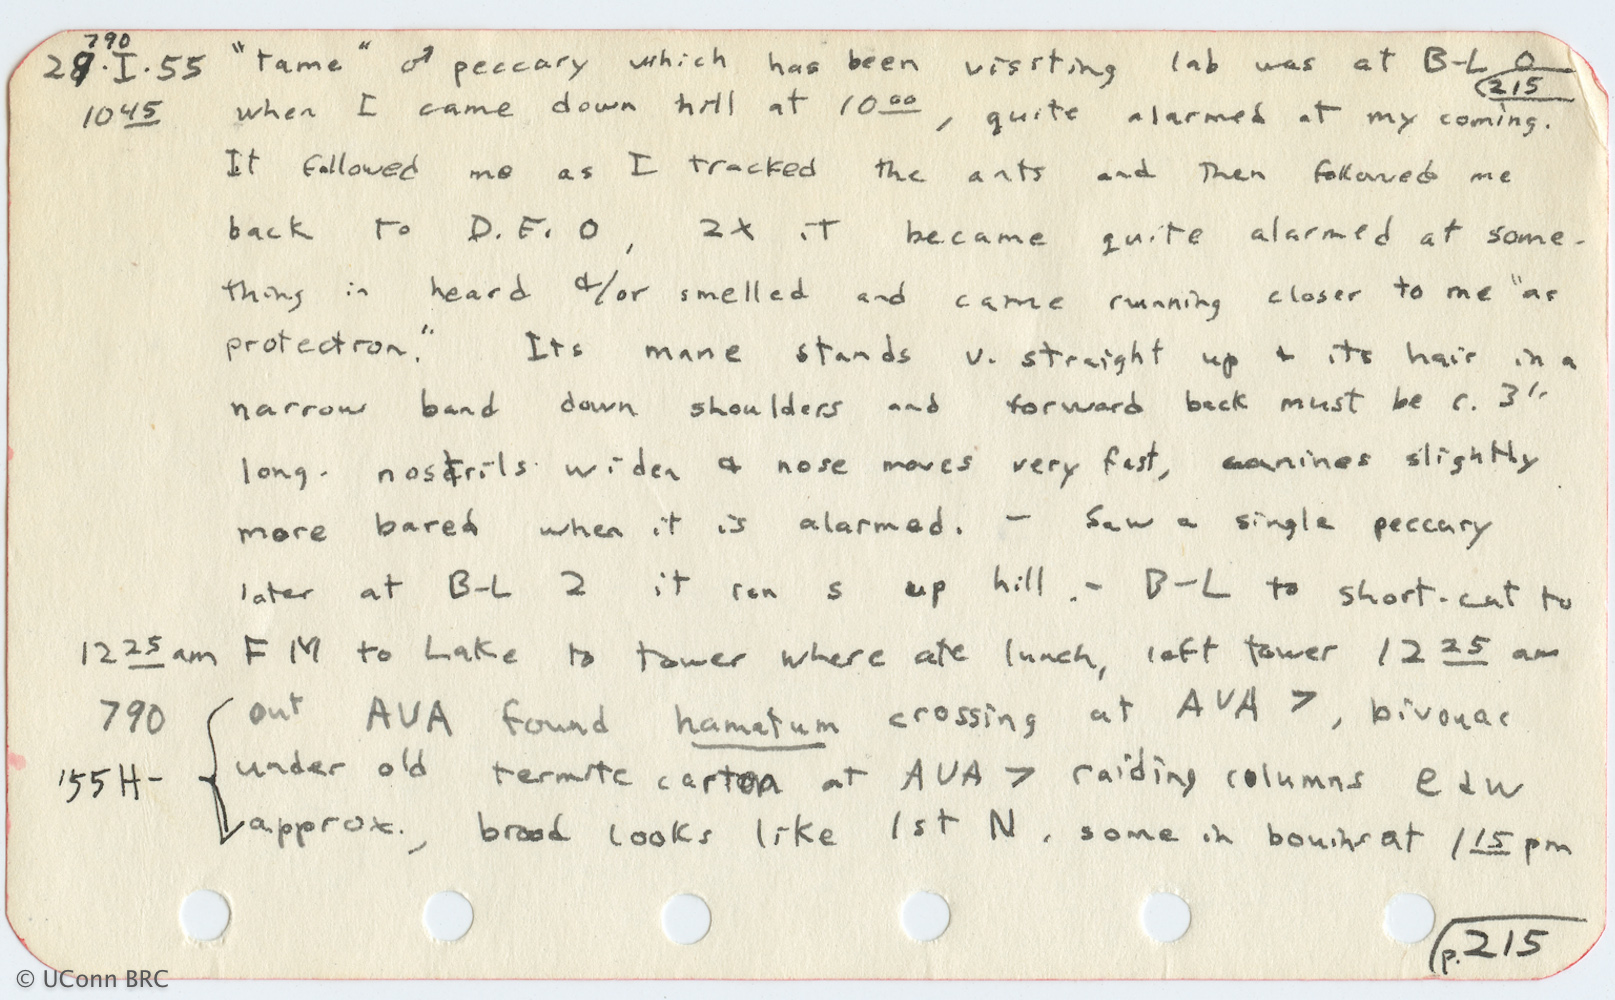 790
28.I.55 "tame" ♂ peccary which has been visiting lab was at B-L 0
215
10 45 when I came down hill at 10 00, quite alarmed at my coming.
It followed me as I tracked the ants and then followed me
back to D.F. 0, 2x it became quite alarmed at some-
thing in heard &/or smelled and came running closer to me "as
protection." Its mane stands v. straight up & its hair in a
narrow band down shoulders and forward back must be c. 3"
long. nostrils widen & nose moves very fast, canines slightly
more bared when it is alarmed. – Saw a single peccary
later at B-L 2 it ran s up hill. – B-L to short-cut to
12 25 am F M to Lake to tower where ate lunch, left tower 12 25 am
790 out AVA found hamatum crossing at AVA 7, bivouac
under old termite carton at AVA 7 raiding columns e & w
'55 H- approx., brood looks like 1st N. some in bouins at 1 15 pm
p. 215
© UConn BRC